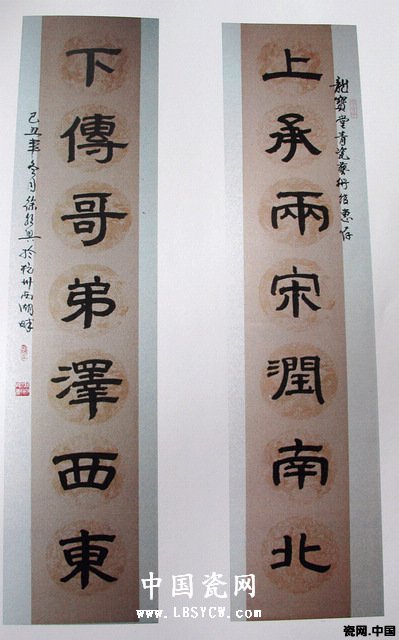 龍寶堂青瓷藝術惠存
上承兩宋潤南北
下傳哥弟澤西東
己丑年冬月徐於杭州西湖畔
中国瓷网
www.LBSYCW.com
瓷网.中国